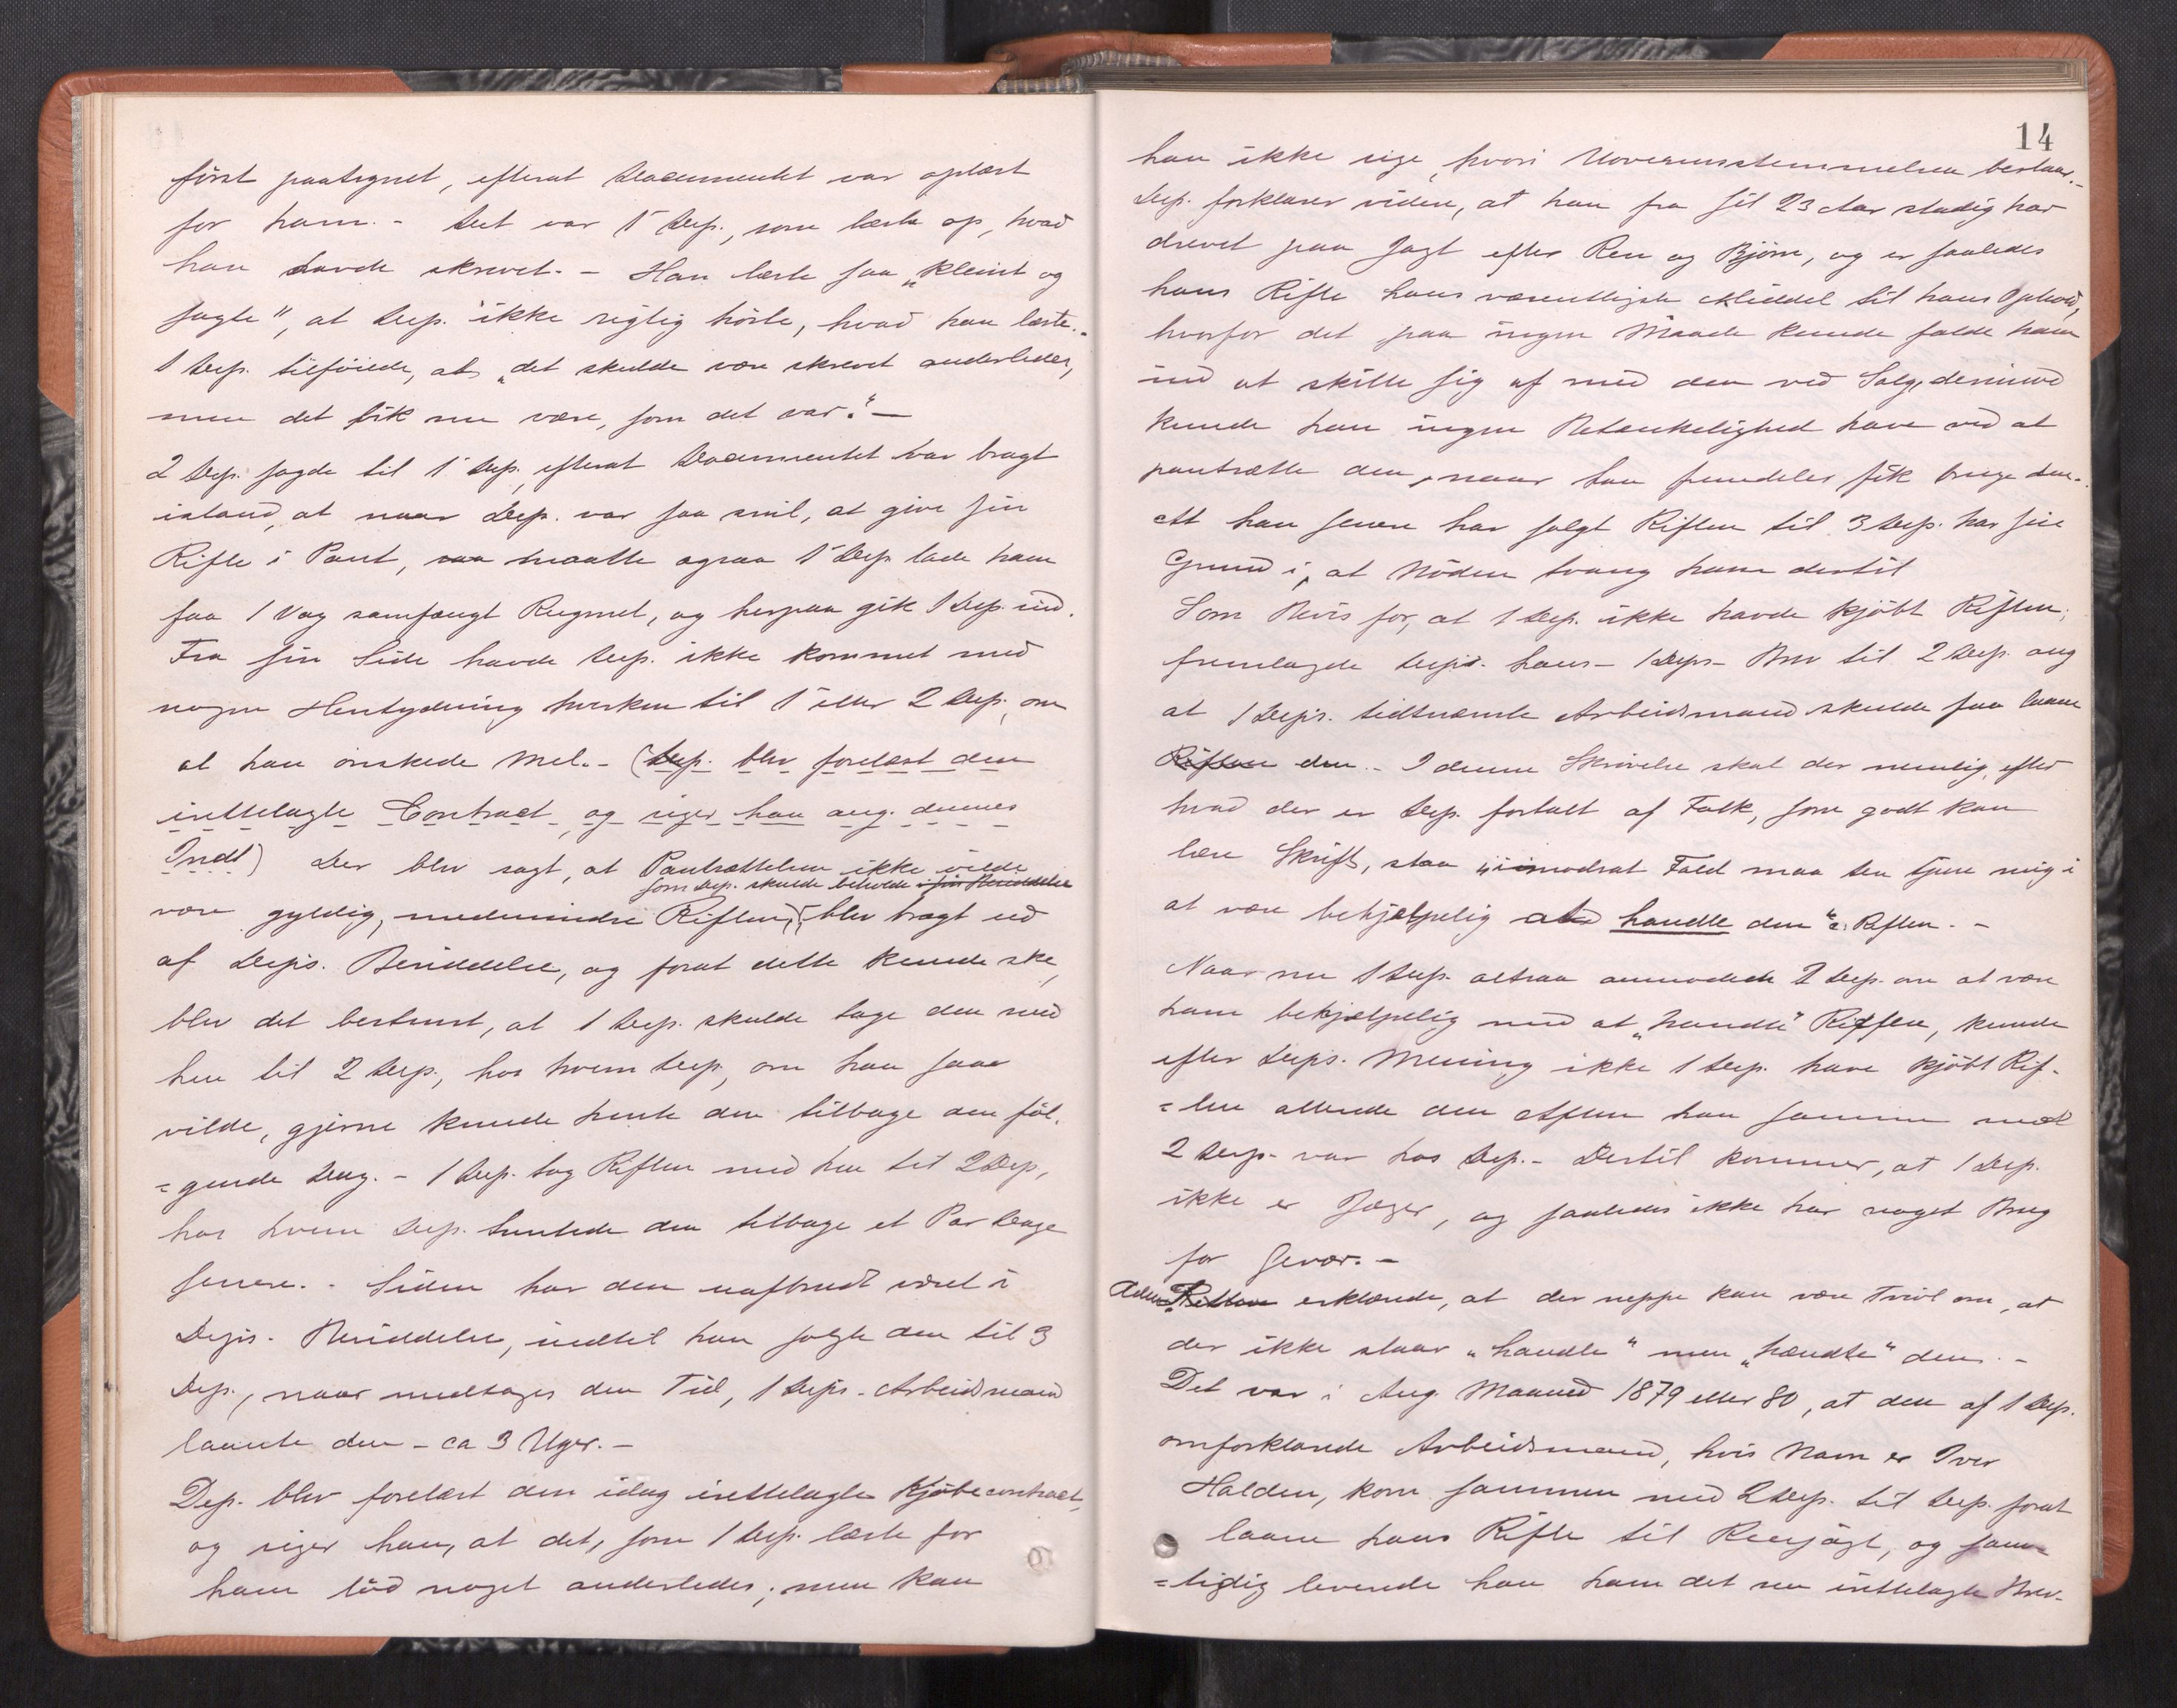 först paategnet, efterat Documentet var oplæst
for ham. - Det var 1 Dep., som læste op, hvad
han havde skrevet. - Han læste saa „kleint og
sagte", at Dep. ikke rigtig hörte, hvad han læste. -
1 Dep. tilföiede, at „det skulde være skrevet anderledes,
men det fik nu være, som det var." -
2 Dep. sagde til 1 Dep., efterat Documentet var bragt
istand, at naar Dep. var saa snil, at give sin
Rifle i Pant, saa maatte ogsaa 1 Dep. lade ham
faa 1 Vog samfængt Rugmel, og herpaa gik 1 Dep. ind.
Fra sin Side havde Dep. ikke kommet med
nogen Hentydning hverken til 1 eller 2 Dep., om
at han önskede Mel. - (Dep. blev forelæst den
irettelagte Contract, og siger han ang. dennes
Indh) Der blev sagt, at Pantsættelsen ikke vilde
som Dep. skulde beholde i sin Besiddelse
være gyldig, medmindre Riflen, blev bragt ud
af Dep's. Besiddelse, og forat dette kunde ske,
blev det bestemt, at 1 Dep. skulde tage den med
hen til 2 Dep., hos hvem Dep., om han saa
vilde, gjerne kunde hente den tilbage den föl-
=gende Dag. - 1 Dep. tog Riflen med hen til 2 Dep,
hos hvem Dep. hentede den tilbage et Par Dage
senere. - Siden har den uafbrudt været i
Dep's. Besiddelse, indtil han solgte den til 3
Dep., naar undtages den Tid, 1 Dep's. Arbeidsmand
laante den - ca 3 Uger. -
Dep. blev forelæst den idag irettelagte Kjöbecontract,
og siger han, at det, som 1 Dep. læste for
ham löd noget anderledes; men kan
14
han ikke sige, hvori Uoverensstemmelsen bestaar. -
Dep. forklarer videre, at han fra sit 23 Aar stadig har
drevet paa Jagt efter Ren og Björn, og er saaledes
hans Rifle hans væsentligste Middel til hans Ophold,
hvorfor det paa ingen Maade kunde falde ham
ind at skille sig af med den ved Salg, derimod
kunde han ingen Betænkelighed have ved at
pantsætte den, naar han fremdeles fik bruge den.
At han senere har solgt Riflen til 3 Dep. har sin
Grund i, at Nöden tvang ham dertil
Som Bevis for, at 1 Dep. ikke havde kjöbt Riflen,
fremlagde Dep's. hans - 1 Dep's - Brev til 2 Dep. ang
at 1 Dep's. tidtnævnte Arbeidsmand skulde faa laane
Riflen den. - I denne Skrivelse skal der nemlig, efter
hvad der er Dep. fortalt af Folk, som godt kan
læse Skrift, staa „i imodsat Fald maa den tjene mig i
at være behjælpelig at handle den" o: Riflen. -
Naar nu 1 Dep. altsaa anmodede 2 Dep. om at være
ham behjælpelig med at „handle" Riflen, kunde
efter Dep's. Mening ikke 1 Dep. have kjöbt Rif-
=len allerede den Aften han sammen med
2 Dep. var hos Dep. - Dertil kommer, at 1 Dep.
ikke er Jæger, og saaledes ikke har noget Brug
for Gevær. -
Adm. Retten erklærede, at der neppe kan være Tvivl om, at
der ikke staar „handle" men „hændte" den. -
Det var i Aug. Maaned 1879 eller 80, at den af 1 Dep.
omforklarede Arbeidsmand, hvis Navn er Iver
Halden, kom sammen med 2 Dep. til Dep. forat
laane hans Rifle til Rensjagt, og sam=
=tidig leverede han ham det nu irettelagte Brev.